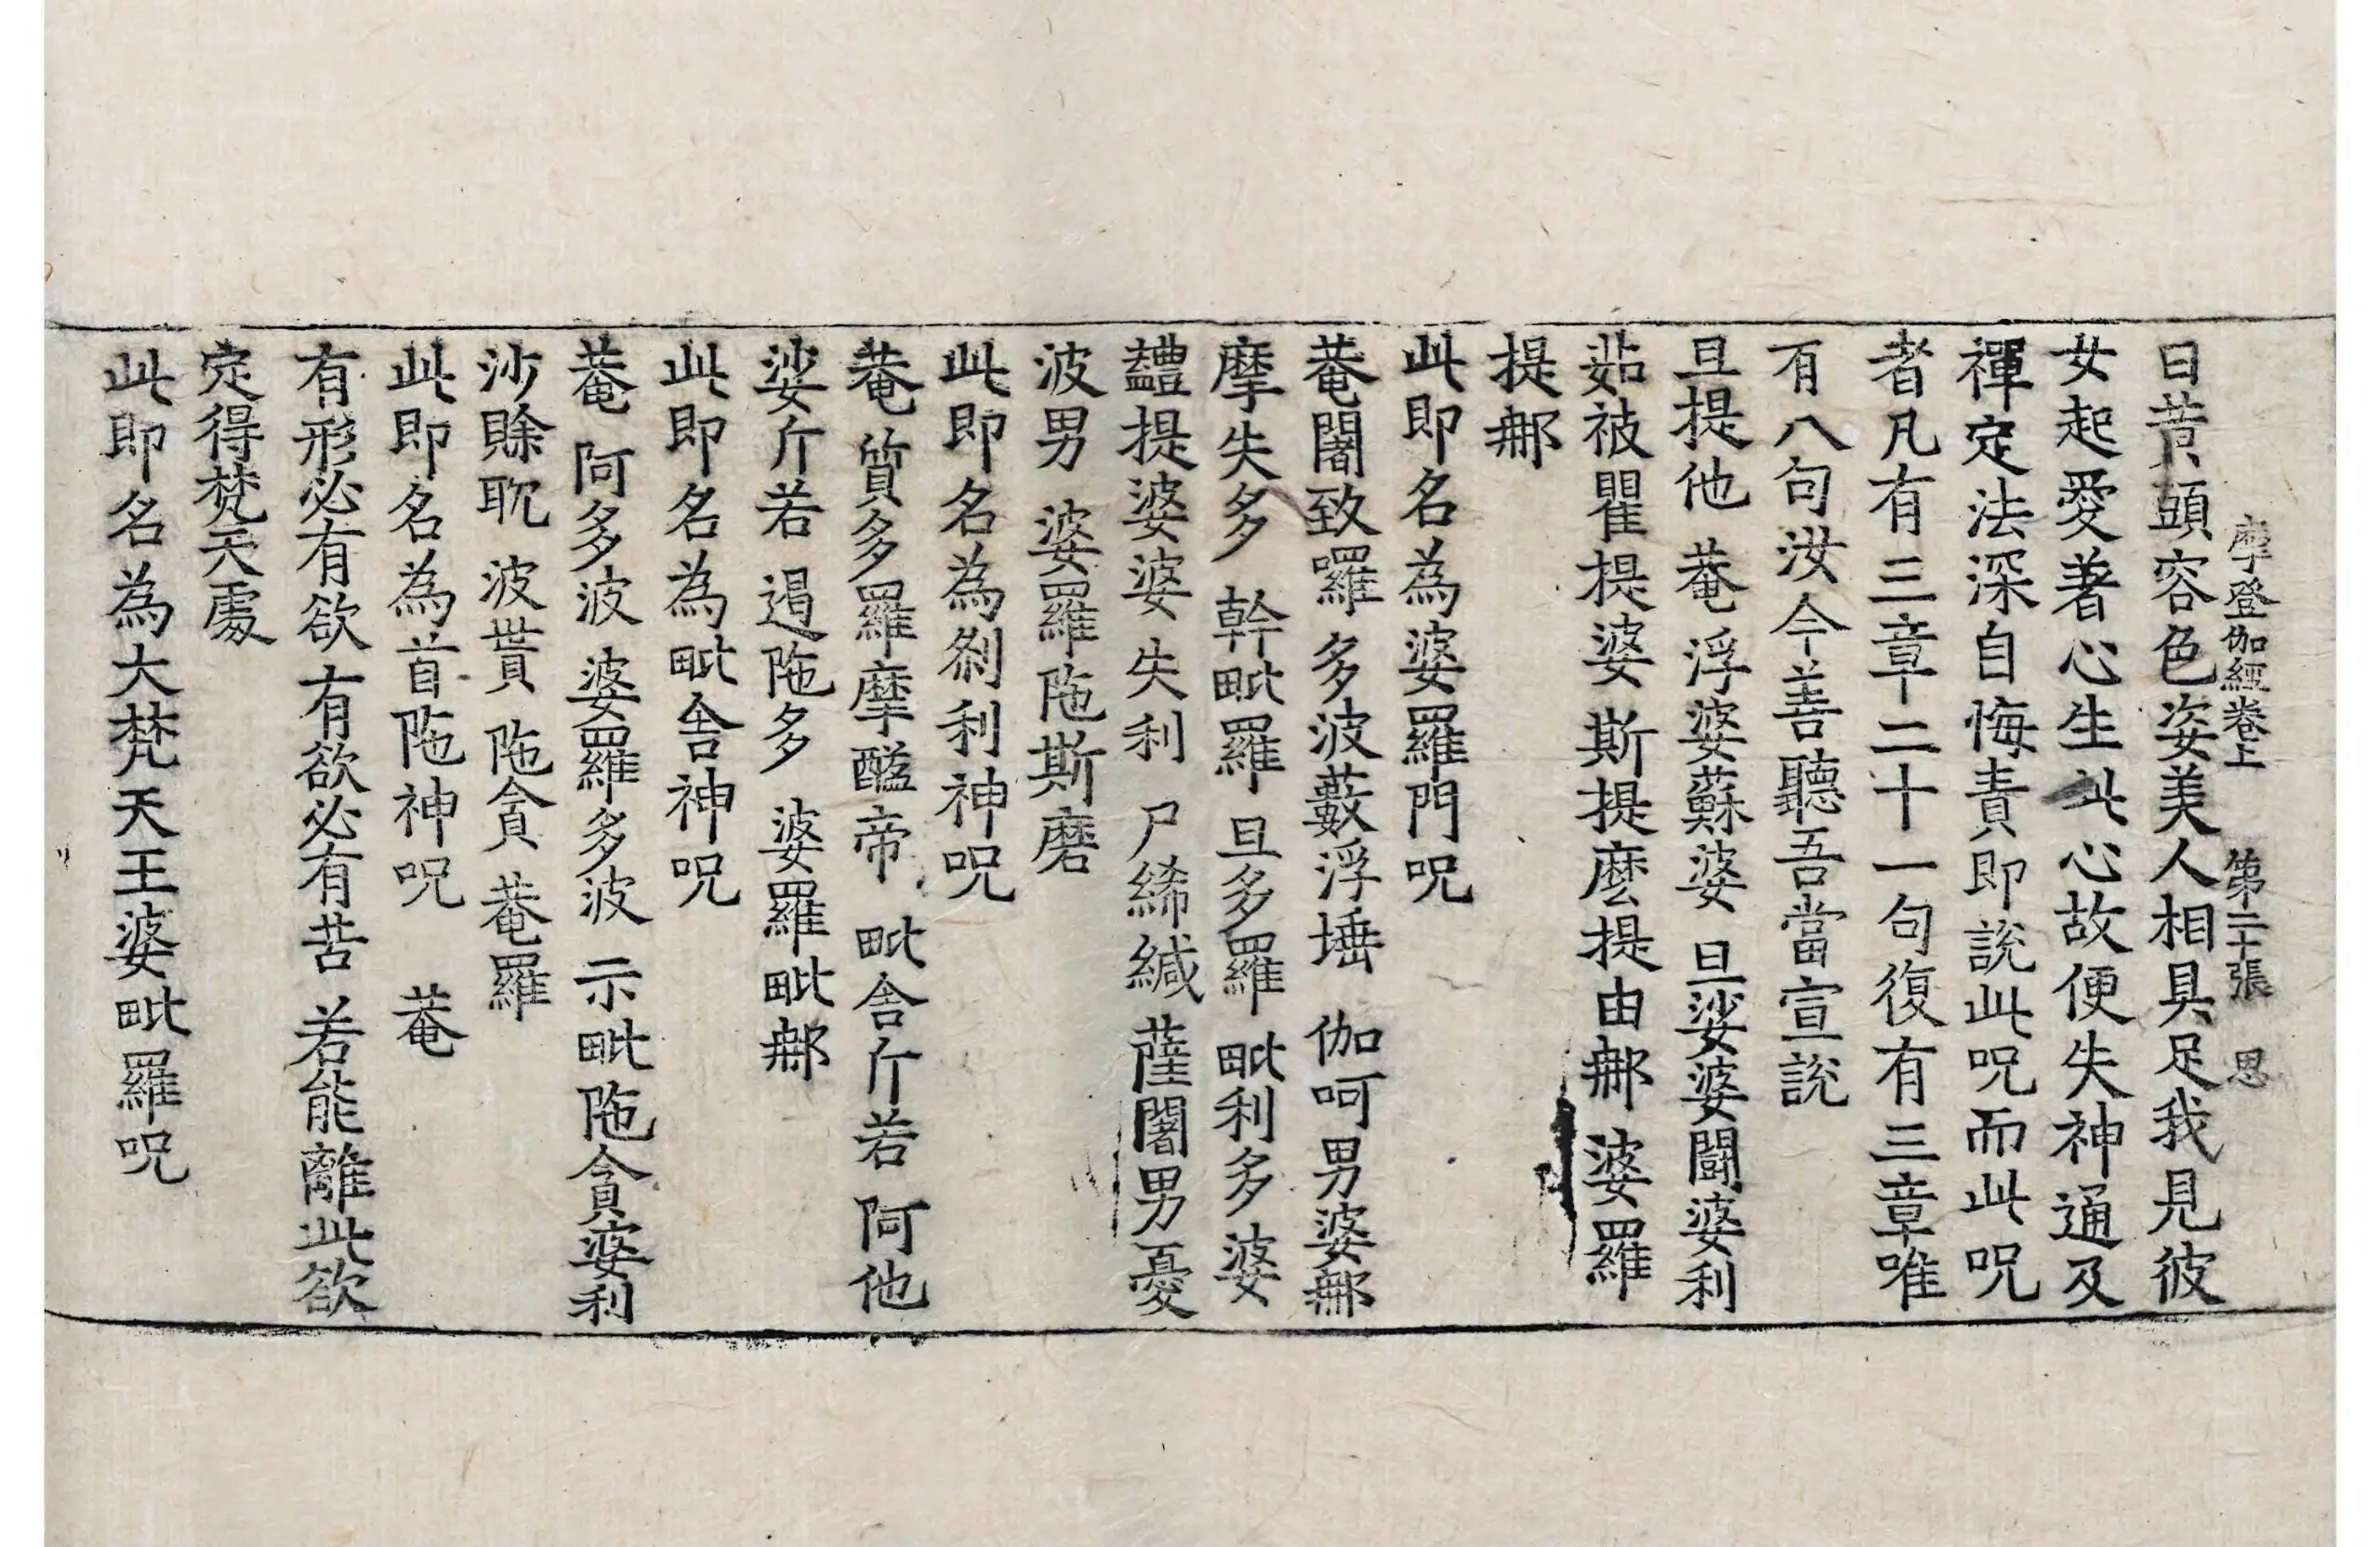 摩登伽經卷上　第二十張　思
曰黃頭容色姿美人相具足我見彼
女起愛著心生此心故便失神通及
禪定法深自悔責即說此呪而此呪
者凡有三章二十一句復有三章唯
有八句汝今善聽吾當宣說
旦提他　菴　浮婆蘇婆　旦娑婆闘婆利
茹彼瞿提婆　斯提麽提由鄦　婆羅
提鄦
此即名為婆羅門呪
菴闍致囉　多波藪浮埵　伽呵男婆鄦
摩失多　幹毗羅　旦多羅　毗利多婆
提婆婆　失利　尸絺緘　薩闍男憂
波男　婆羅陁斯磨
此即名為剎利神呪
菴　質多羅摩醯帝　毗舍斤若　阿他
娑斤若　遏陁多　婆羅毗鄦
此即名為毗舍神呪
菴　阿多波　婆羅多波　示毗陁貪婆利
沙賒　波貰　陁貪　菴羅
此即名為首陁神呪　菴
有形必有欲　有欲必有苦　若能離此欲
定得梵天處
此即名為大梵天王婆毗羅呪